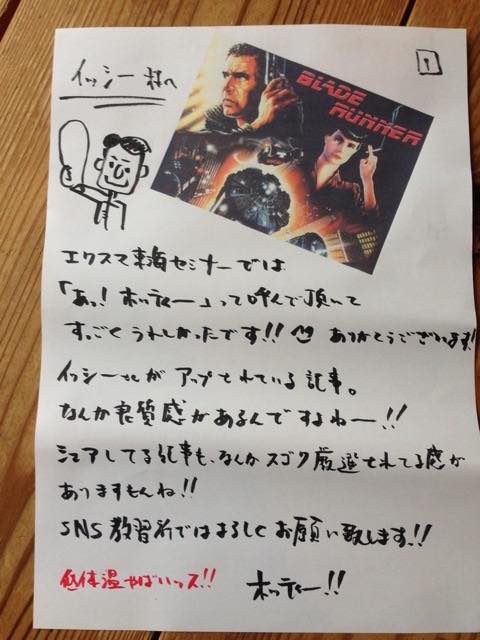 1
イッシー様へ
BLADE
RUNNER
エクスマ東海セミナーでは
「あっ！ホッティー」って呼んで頂いて
すっごくうれしかったです!! ありがとうございます!
イッシーさんがアップされている記事。
なんか良質感があるんですよねー!!
シェアしてる記事も、なんかスゴク厳選されてる感が
ありますもんね!!
SNS教習所ではよろしくお願い致します!!
低体温やばいっス!!
ホッティー!!